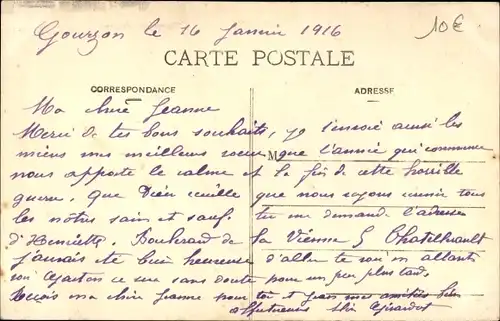 Gourzon le 16 Janvier 1916
10€
CARTE POSTALE
CORRESPONDANCE
ADRESSE
Ma chère Jeanne
Merci de tes bons souhaits, je t'envoie aussi les
miens mes meilleurs voeux M que l'année qui commence
nous apporte le calme et la fin de cette horrible
guerre. que Dieu veuille que nous soyons réunir tous
les nôtres sain et sauf. tu me demande l'adresse
d'Henriette. Boulevard de la Vienne 5 Chatellerault
j'aurais été bien heureuse d'aller te voir en allant
voir Gaston ce sera sans doute pour un peu plus tard.
Reçois ma chère Jeanne pour toi et Jean mes amitiés bien
affectueuses Girardot